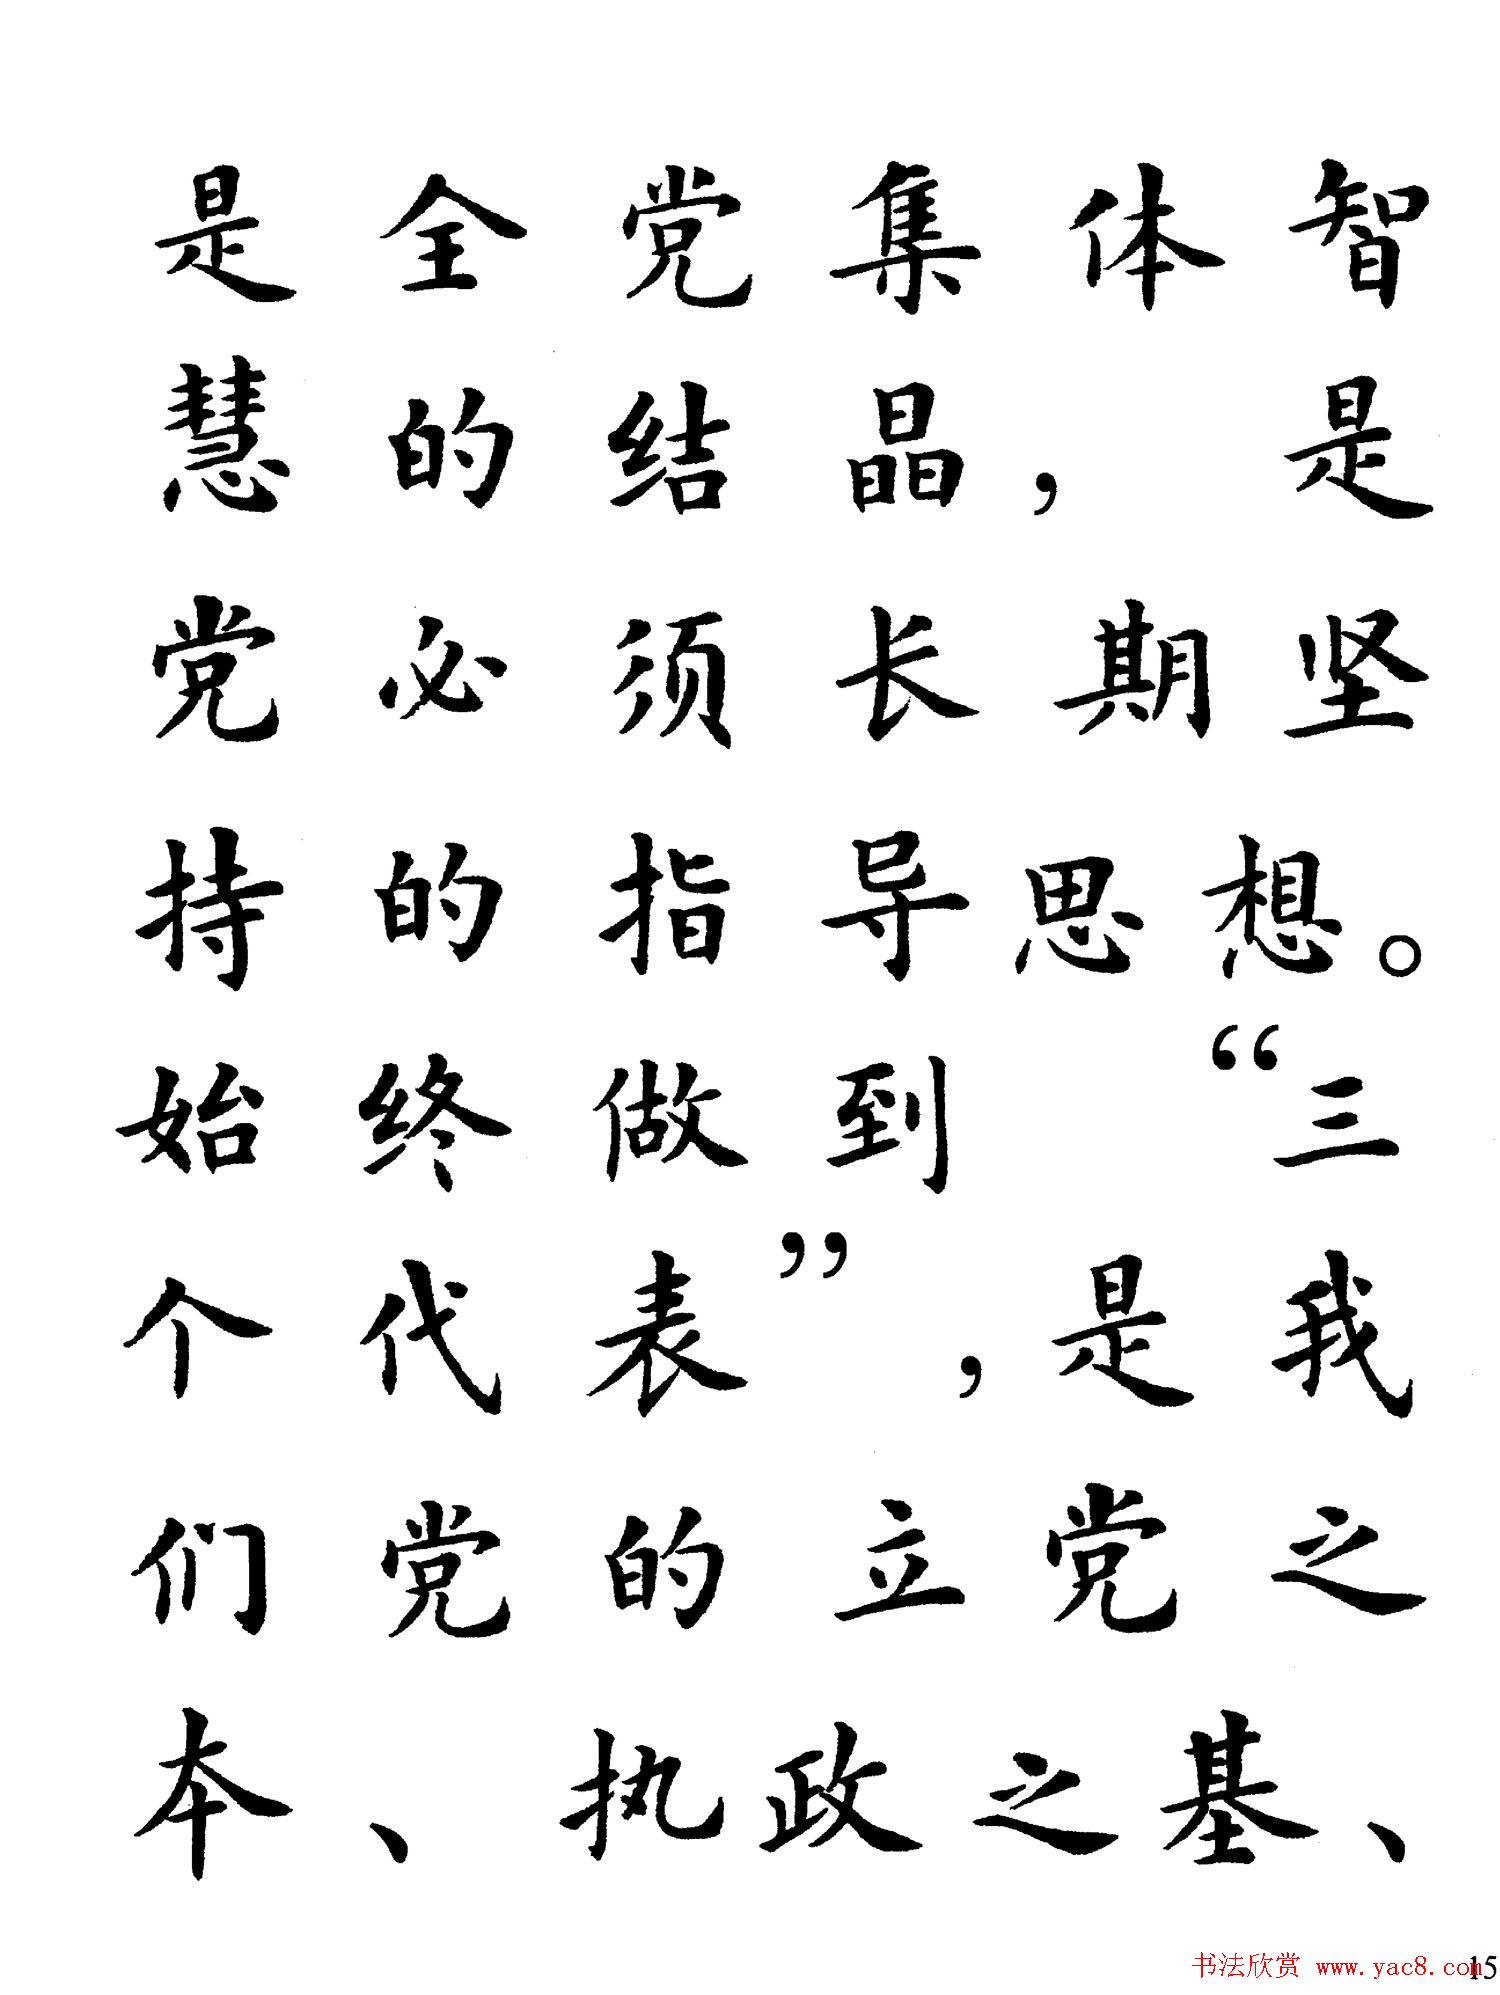 是全党集体智
慧的结晶，是
党必须长期坚
持的指导思想。
始终做到“三
个代表”，是我
们党的立党之
本、执政之基、
书法欣赏 www.yac8.com
15